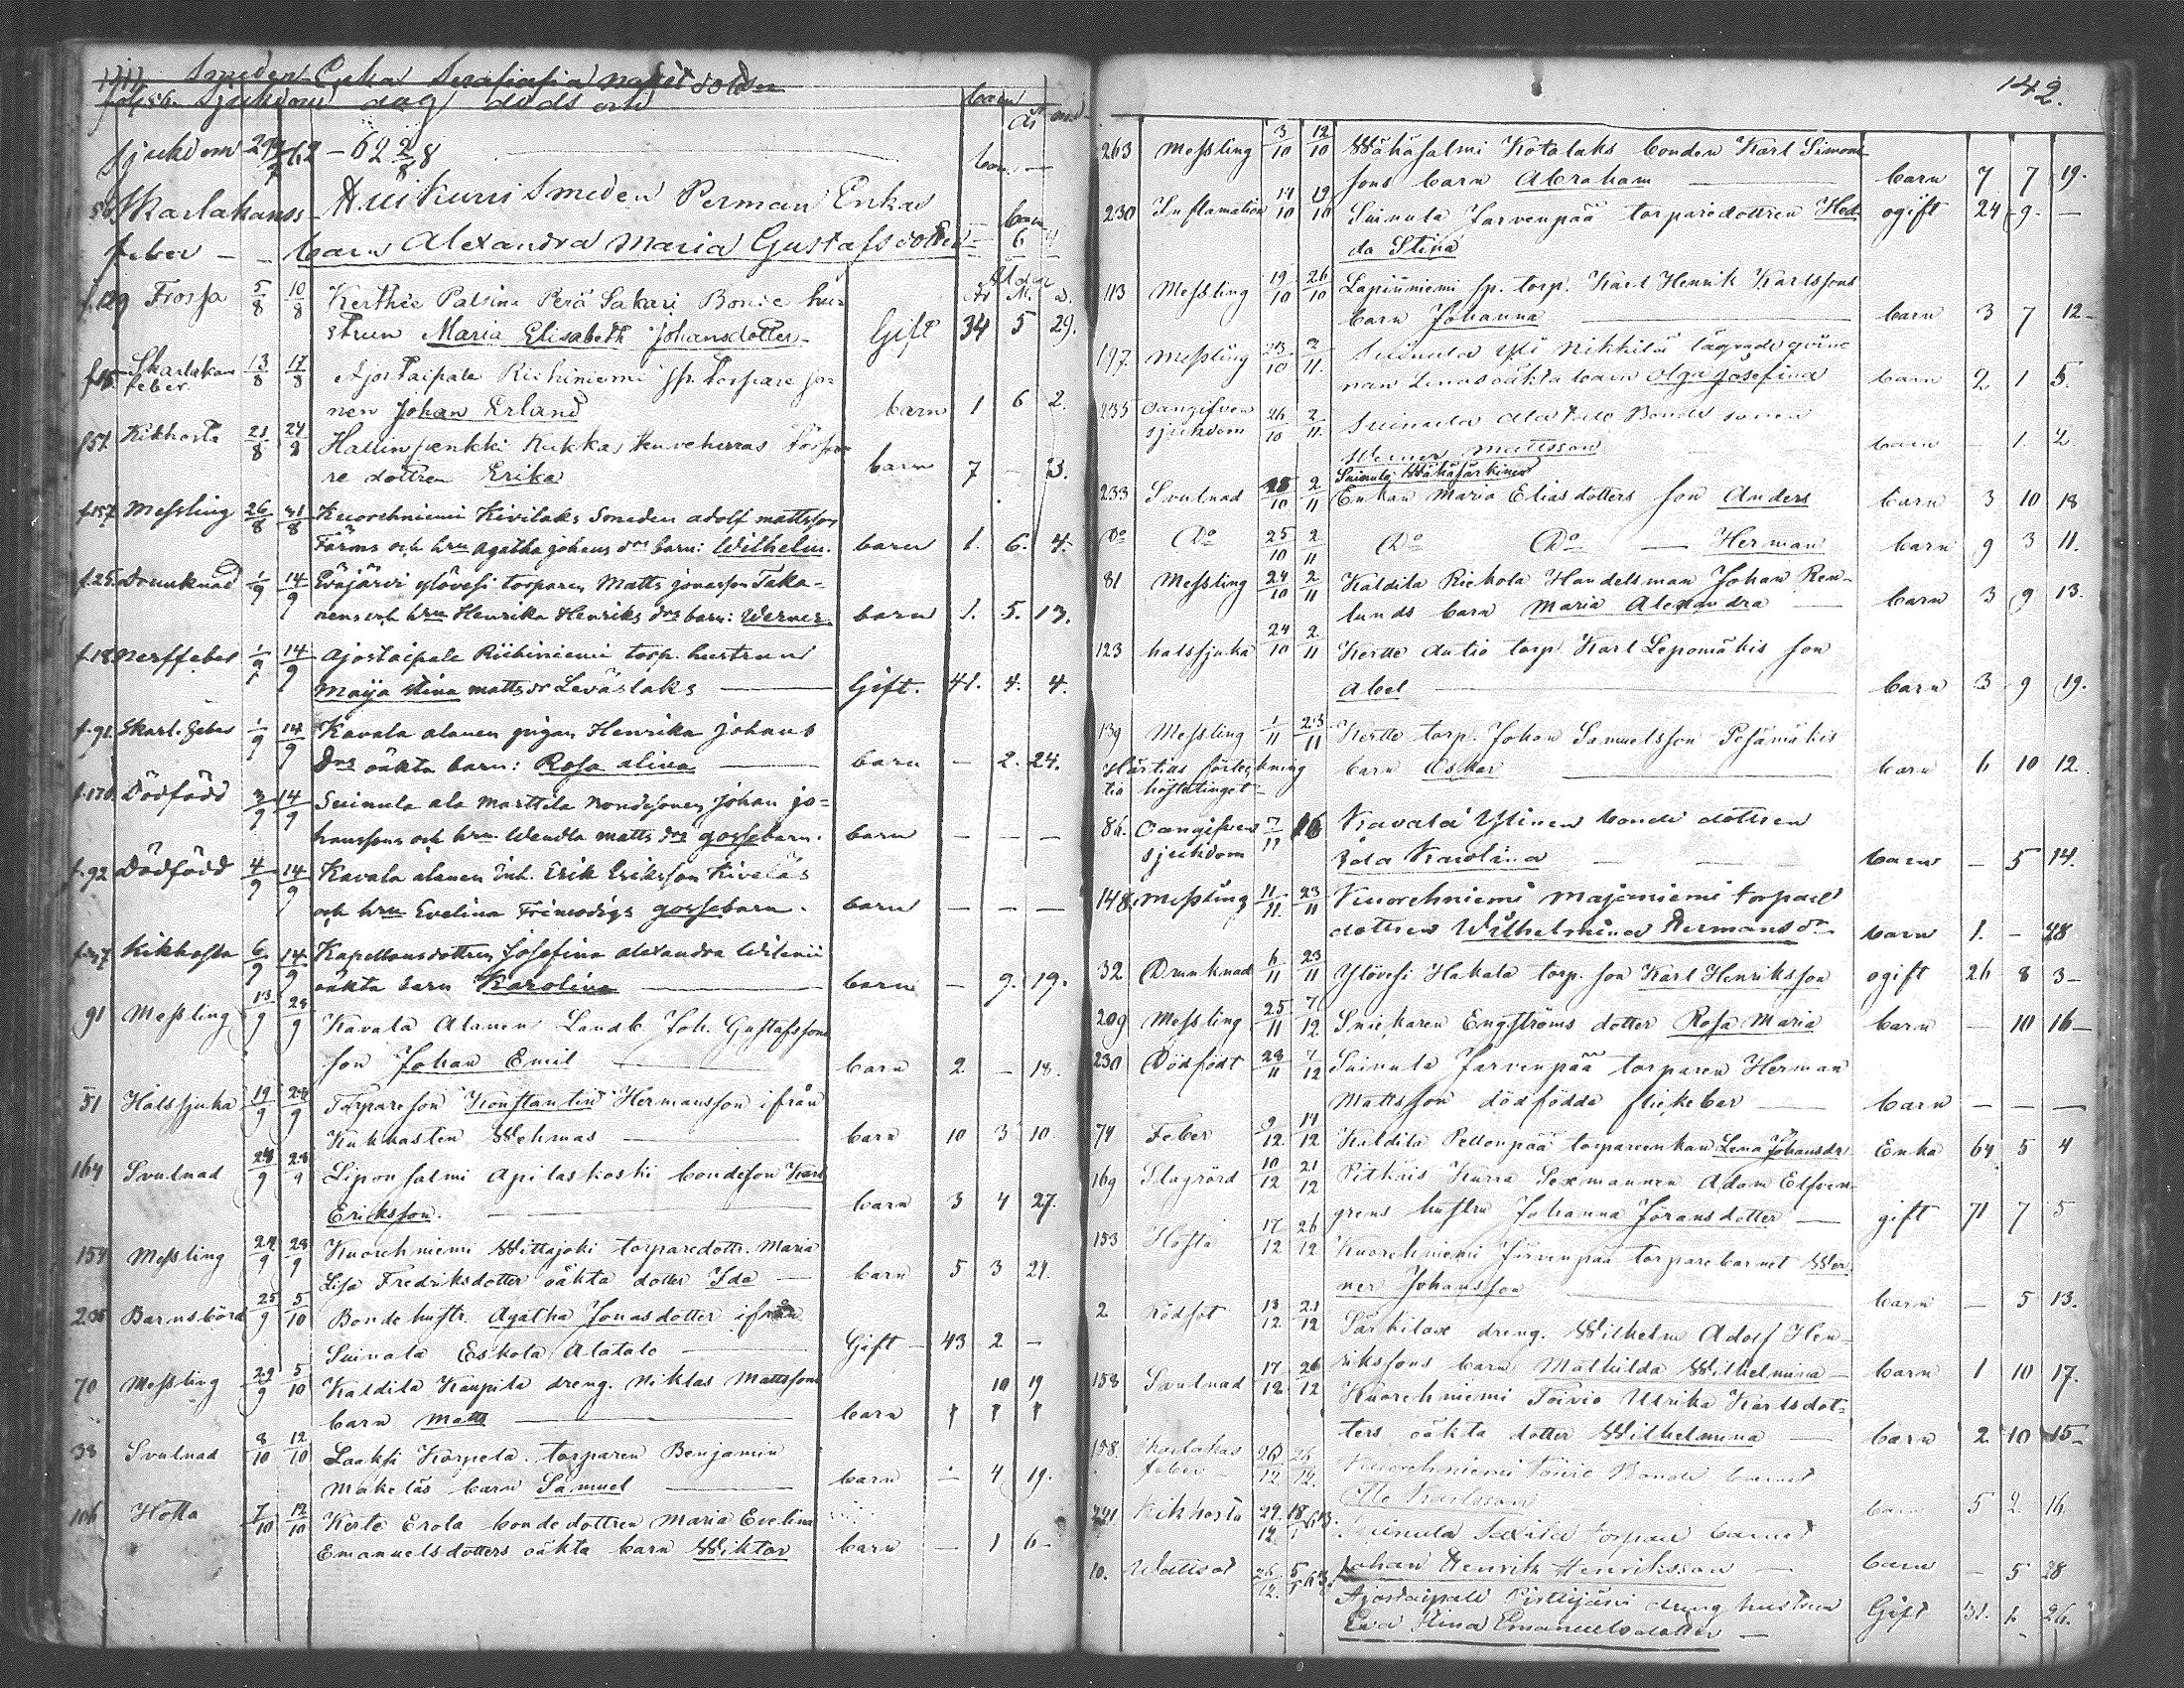 Smeden Enka
sjukdom dag döds barn
år
sjukdom 29/7 62 - 62 2/8
Skarlakans Smeden Perman Enkas barn
feber - - barn Alexandra Maria Gustafsdotter - 6
Ålder
år M. d.
f.129 Frossa 5/8 10/8 Kerthee Palsina Perä Sakari Bonde hu-
strun Maria Elisabeth Johansdotter Gift 34 5 29.
Skarlakans feber 13/8 17/8 Ajostaipale Riihiniemi sp. Torpare so-
nen Johan Erland barn 1 6 2.
f51. Kikhosta 21/8 24/8 Hallinpenkki Kukkas torpa-
re dottren Erika barn 7 - 3.
f.157 Messling 26/8 31/8 Kuorehniemi Kivilaks Smeden Adolf Mattsson
Färms och hru Agatha Johans drs barn: Wilhelm. barn 1. 6. 4.
f.25. Drunknad 1/9 14/9 Eräjärvi Ylövesi torparen Matts Jonasson Taka-
nens och hru Henrika Henriks drs barn: Werner. barn 1. 5. 13.
f.18 Nerffeber 1/9 14/9 Ajostaipale Riihiniemi torp. hustrun
Maija Stina Mattsdr Leväslaks Gift. 41. 4. 4.
f.91. Skarl. feber 1/9 14/9 Kavala Alanen pigan Henrika Johans
Drs oäkta barn: Rosa Alina barn - 2. 24.
f.170 Dödfödd 3/9 14/9 Suinula Ala Marttila Bondesonen Johan Jo-
hanssons och hru Wendla Matts drs gossebarn. barn - - -
f.92 Dödfödd 4/9 14/9 Kavala Alanen Inh. Erik Eriksson Kiveläs
och hru Evelina gossebarn. barn - - -
Kikhosta 6/9 14/9 Kapellansdottren Josefina Alexandra Wilenii
oäkta barn Karolina barn - 9. 19.
91 Messling 13/9 28/9 Kavala Alanen Landb. Joh. Gustafssons
son Johan Emil barn 2 - 18.
51 Halssjuka 19/9 28/9 Torpareson Konstantin Hermansson ifrån
Kukkasten Wehmas barn 10 3 10
164 Svulnad 28/9 28/9 Liponsalmi Apilaskoski bondeson Karl
Ericksson. barn 3 4 27.
154 Messling 24/9 28/9 Kuorehniemi Wittajoki torparedottr. Maria
Lisa Fredriksdotter oäkta dotter Ida barn 5 3 21.
Barnsbörd 25/9 5/10 Bondehustr. Agatha Jonasdotter ifrån
Suinula Eskola Alatalo Gift - 43 2 -
70 Messling 29/9 5/10 Kaldila Kaupila dreng. Niklas Mattssons 10 19
barn Matts barn
38 Svulnad 8/10 12/10 Laaksi Korpela torparen Benjamin
Mäkeläs barn Samuel barn - 4 19.
106 Hosta 7/10 12/10 Kerte Erola bondedottren Maria Evelina
Emanuelsdotters oäkta barn Wiktor barn - 1 6-
142.
263 Messling 3/10 12/10 Wähäsalmi Kotalaks bonden Karl Simons
sons barn Abraham barn 7 7 19.
230 Inflamation 14/10 19/10 Suinula Jarvenpää torparedottren Hed- ogift 24 9. -
da Stina
113 Messling 19/10 26/10 Lapinniemi sp. torp. Karl Henrik Karlssons
barn Johanna barn 3 7 12-
197. Messling 23/10 2/11. Suinula Yli Nikkilä lägrade qvin-
nan Lenas oäkta barn Olga Josefina barn 2 1 5.
235 Oangifven sjukdom 26/10 2/11. Suinula Alatalo Bonde sonen
Werner Mattsson barn - 1. 2.
Suinula Wähäsärkinen
233 Svulnad 28/10 2/11 Enkan Maria Eliasdotters son Anders barn 3 10 18
Do Do 25/10 2/11 Do Do - Herman barn 9 3 11.
81 Messling 24/10 2/11 Kaldila Riekola Handelsman Johan Ren-
lunds barn Maria Alexandra barn 3 9 13.
123 halssjuka 24/10 2/11 Kertte Autio torp. Karl Lepomäkis son
Abel barn 3 9 19.
139 Messling 1/11 23/11 Kertte torp. Johan Samuelsson Pesämäkis
barn Oskar barn 6 10 12.
Härtills förteckning
till häftetinget
86. Oangifven sjukdom 7/11 16 Kavala Ylinen bonde dottren
Ida Karolina barn - 5 14.
148. Messling 11/11. 23/11 Kuorehniemi Majaniemi torpare
dottren Wilhelmina Hermans dr barn 1. - 28
32 Drunknad 6/11 23/11 Ylövesi Hakala torp. son Karl Henriksson ogift 26 8 3-
209 Messling 25/11 7/12 Snickaren Engströms dotter Rosa Maria barn - 10 16-
230 Dödfödt 28/11 7/12 Suinula Jarvenpää torparen Herman
Mattsson dödfödda flickebar barn - - -
74 Feber 9/12 14/12 Kaldila Pellonpää torpareenkan Lena Johansdr Enka 64 5 4
169 Slagrörd 10/12 21/12 Pitkäis Kuria Sexmannen Adam Elfven-
grens hustru Johanna Göransdotter gift 71 7 5
153 Hosta 17/12 26/12 Kuorehniemi Järvenpää torparebarnet Wer
ner Johansson barn - 5 13.
2 rödsot 13/12 21/12 Särkilax dreng. Wilhelm Adolf Hen-
rikssons barn Mathilda Wilhelmina barn 1 10 17.
158 Svulnad 17/12 26/12 Kuorehniemi Toivio Ulrika Karlsdot-
ters oäkta dotter Wilhelmina barn 2 10 15-
158. Skarlakas feber 20/12 26/12. Kuorehniemi Toivio Bonde barnet
Otto Karlsson barn 5 2 16
Kikhosta 29/12 18/1 63. Suinula torpare barnet
Johan Henrik Henriksson barn - 5 28
10. Wattsot 26/12. 5/1 63. Ajostaipale dreng hustrun Gift 31. 1. 26.
Eva Stina Emanuelsdotter